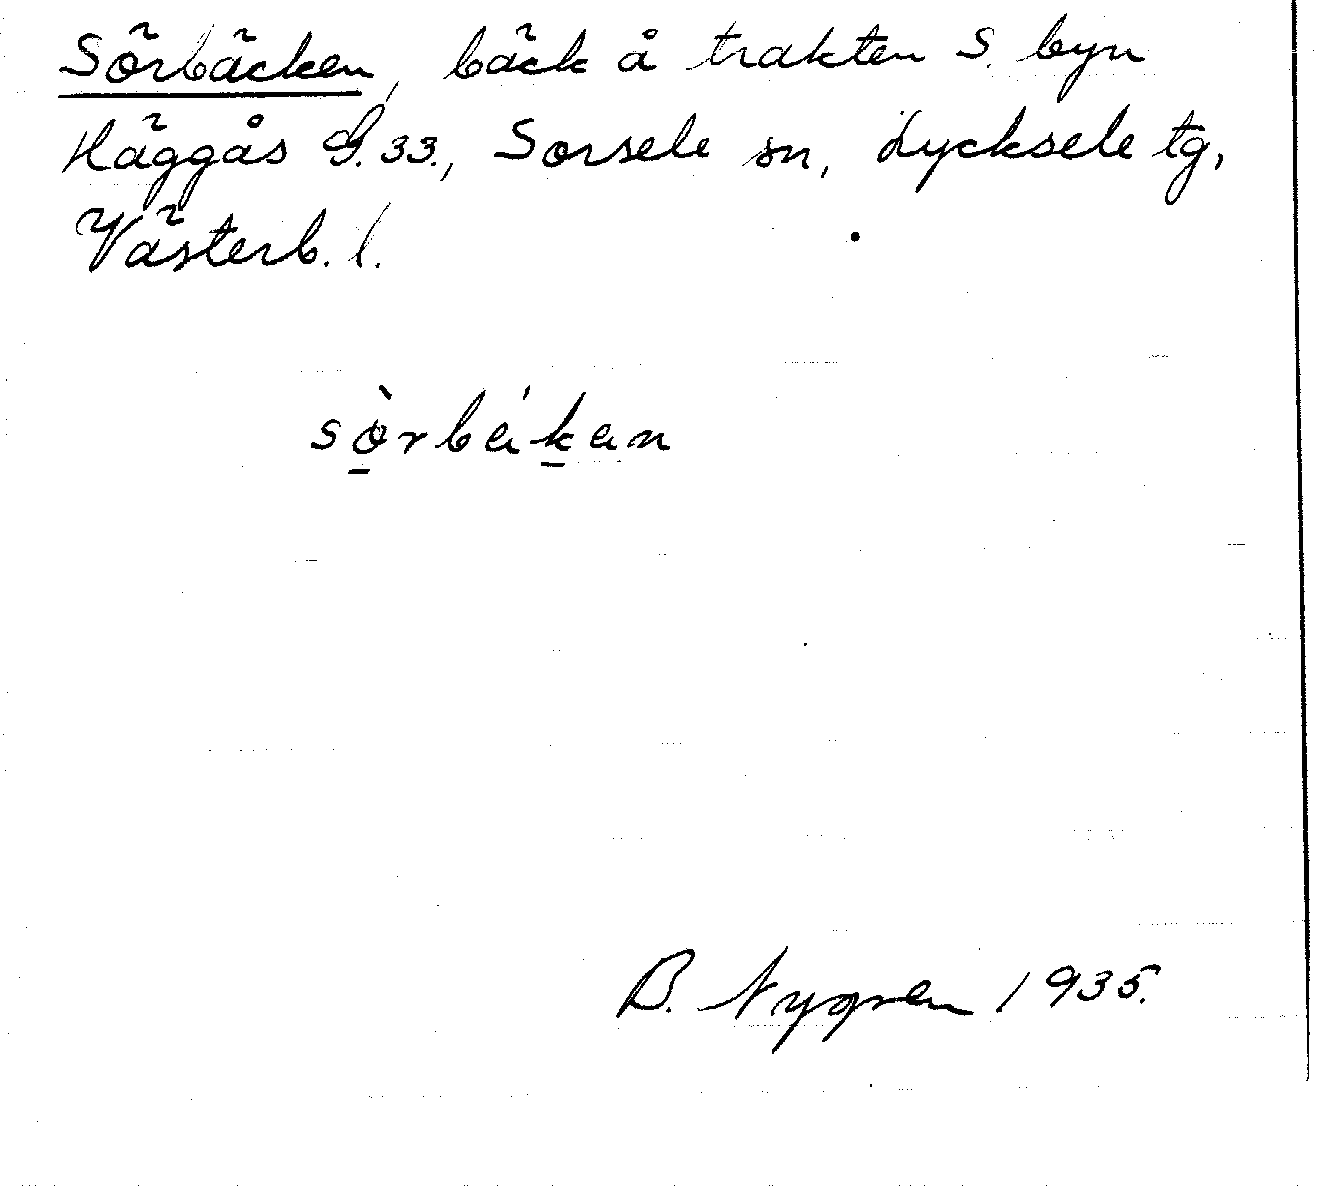 Sörbäcken, bäck å trakten S. byn
Häggås G.33., Sorsele sn, Lycksele tg,
Västerb. l.
sò̱rbék̲en
B. Nygren 1935.